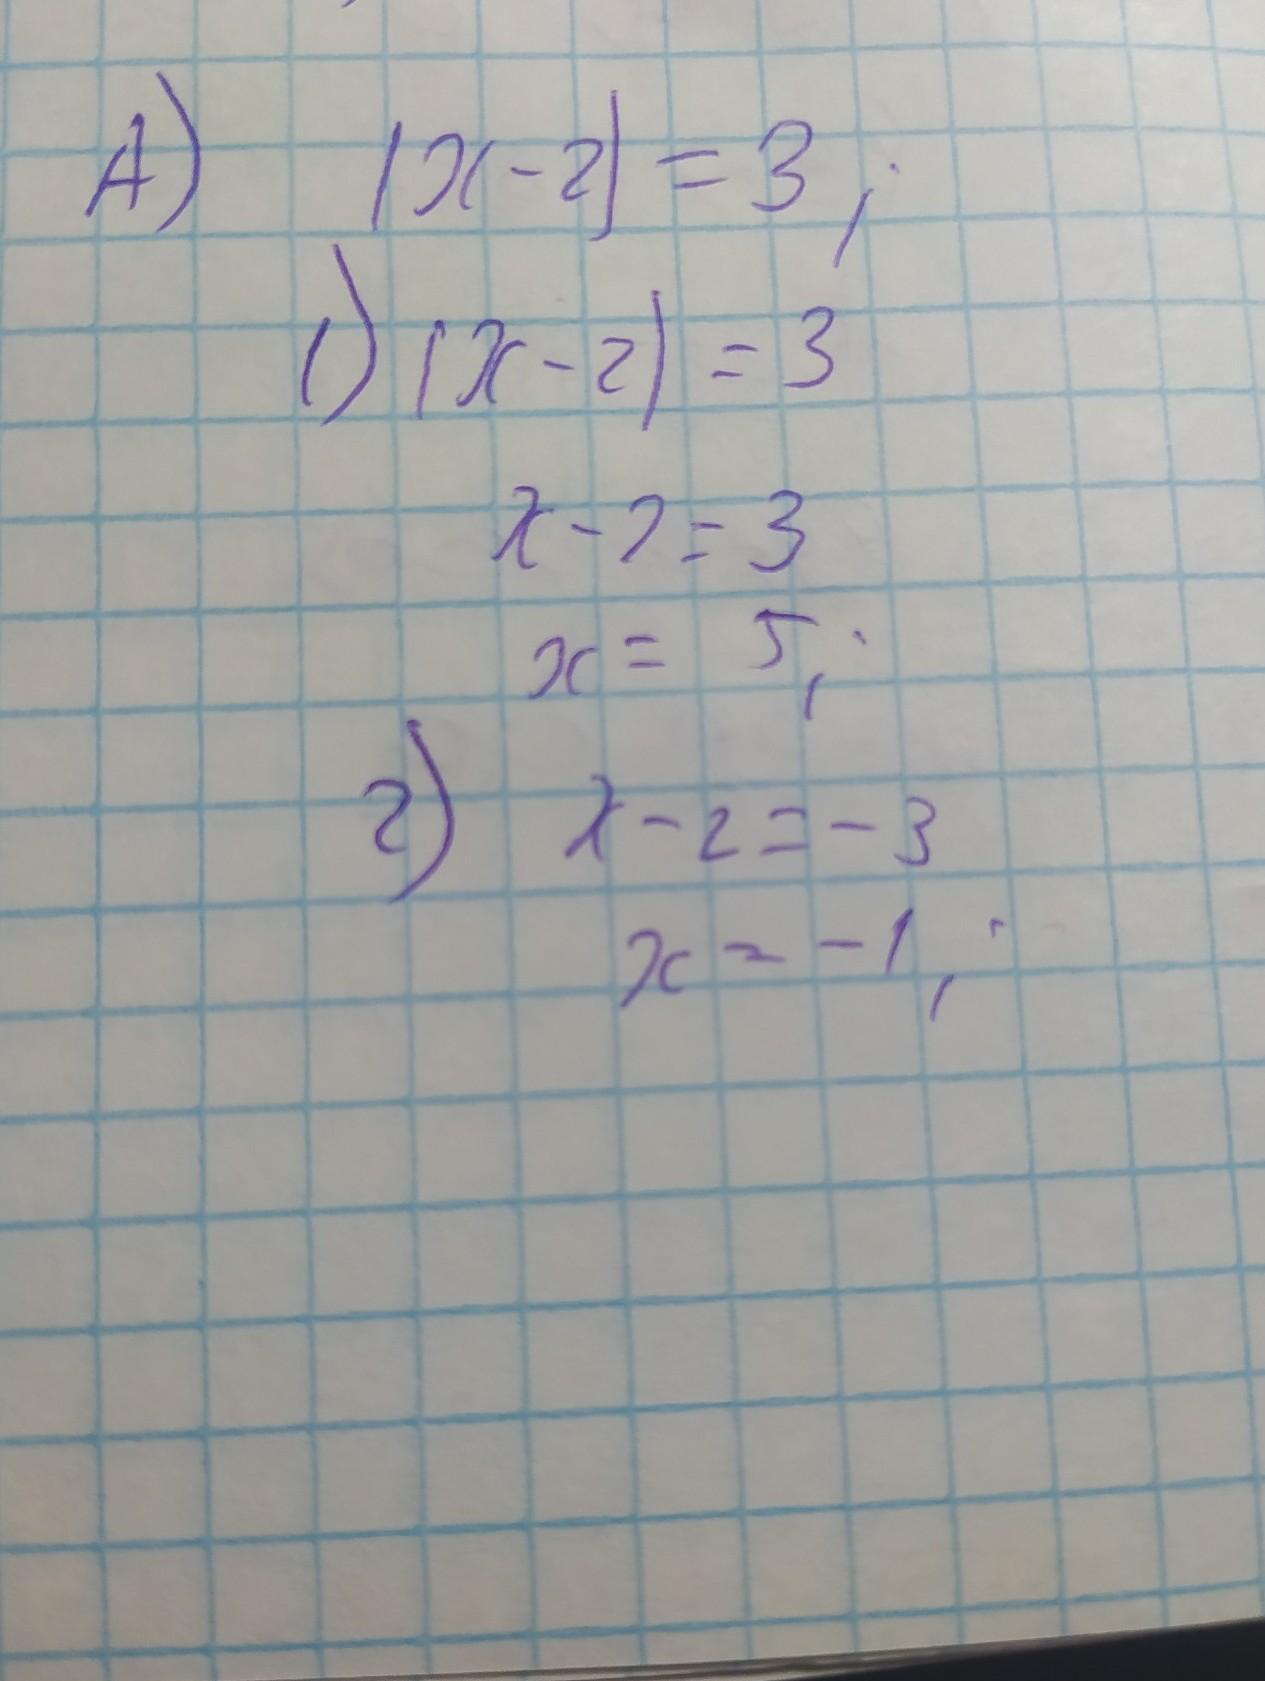 А) |x-2| = 3;
1) |x-2| = 3
x-2=3
x= 5;
2) x-2=-3
x=-1;